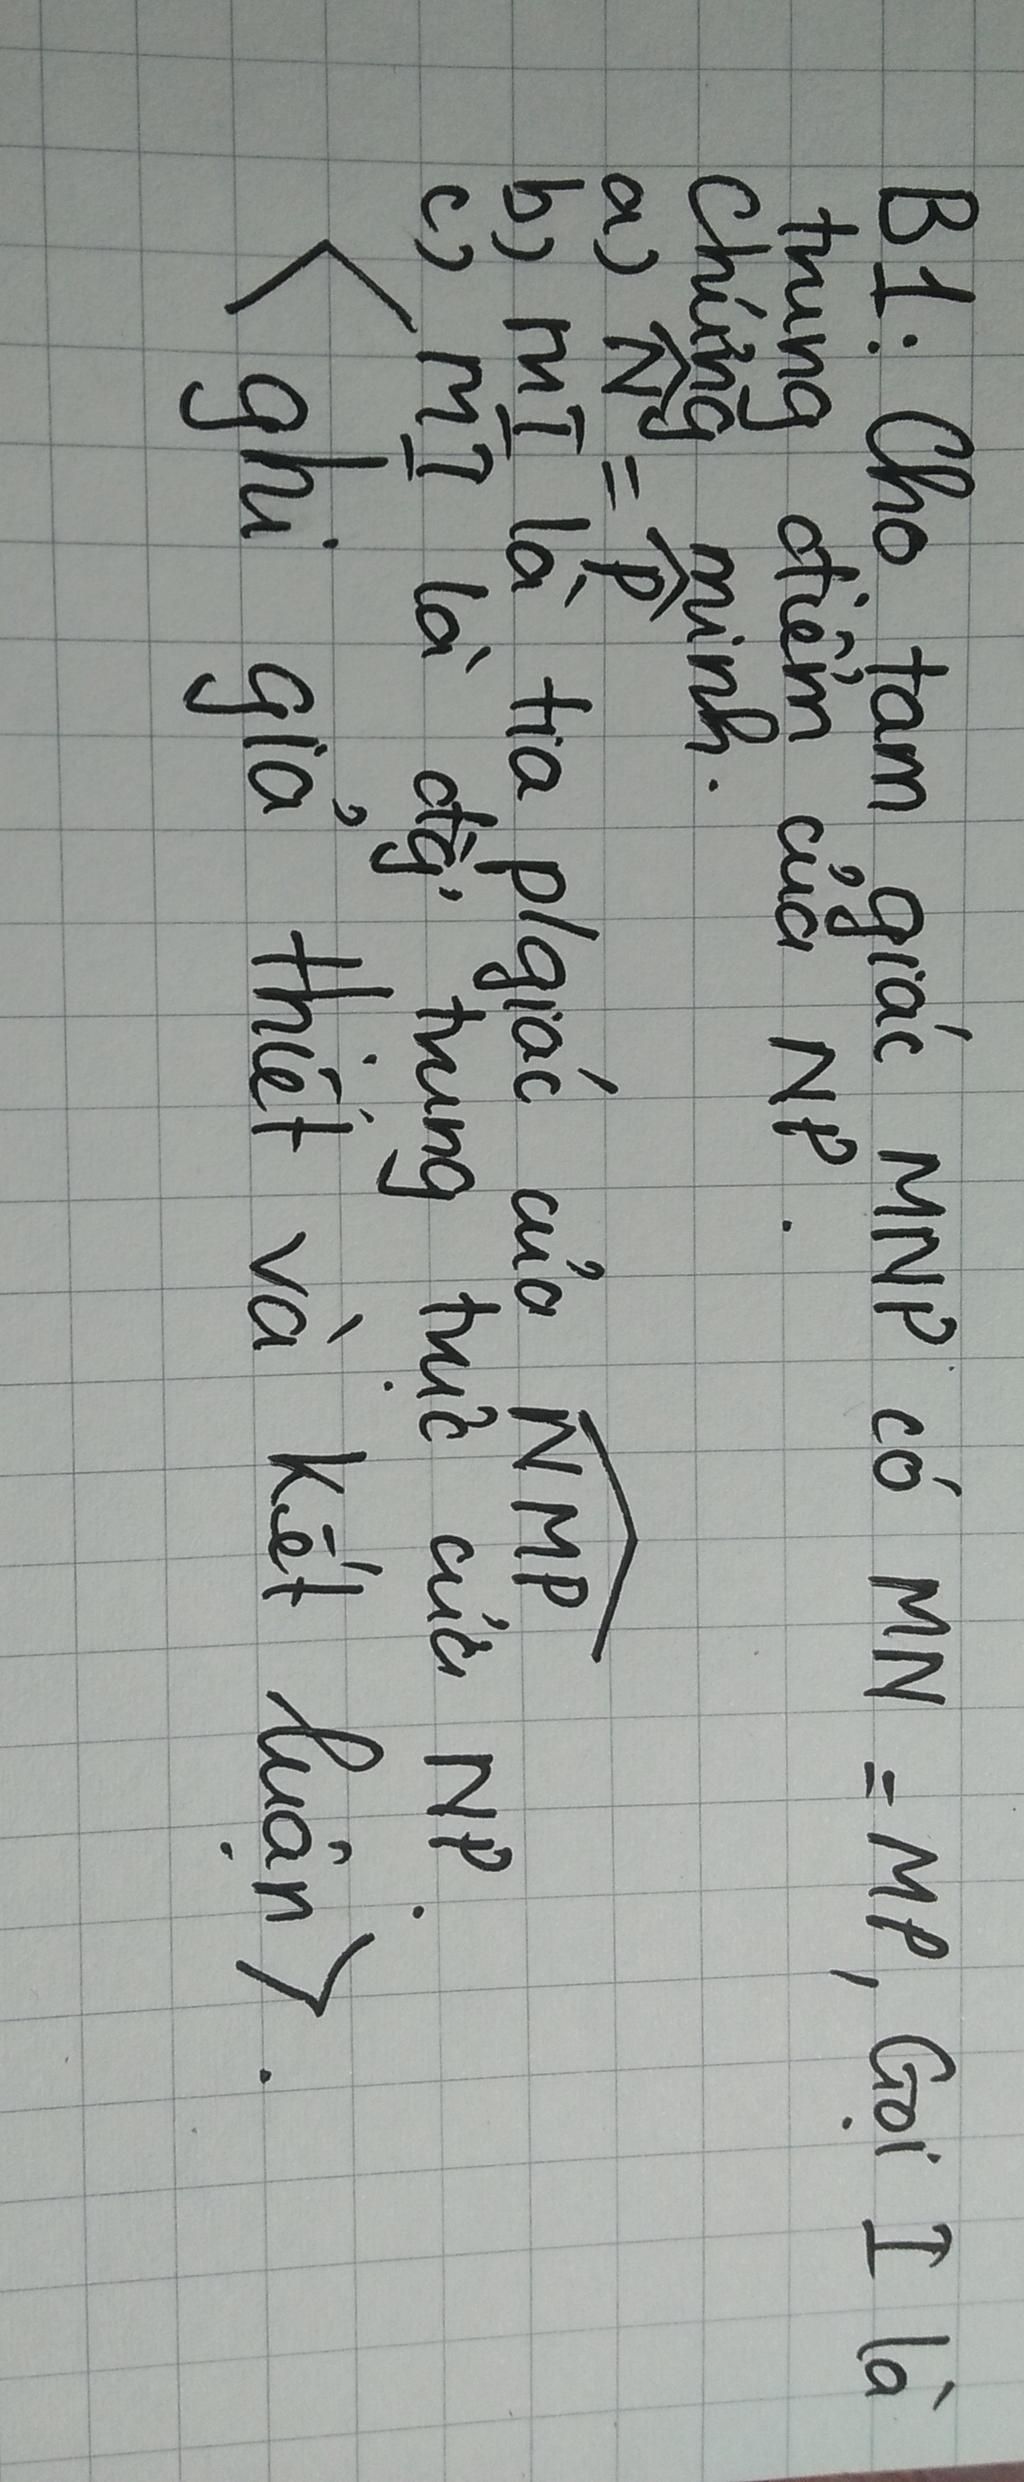 B1: Cho tam giác MNP có MN = MP, Gọi I là
trung điểm của NP.
Chứng minh.
a) N̂ = P̂
b) MI là tia p/giác của NMP
c) MI là đg' trung trực của NP.
< ghi giả thiết và kết luận>.